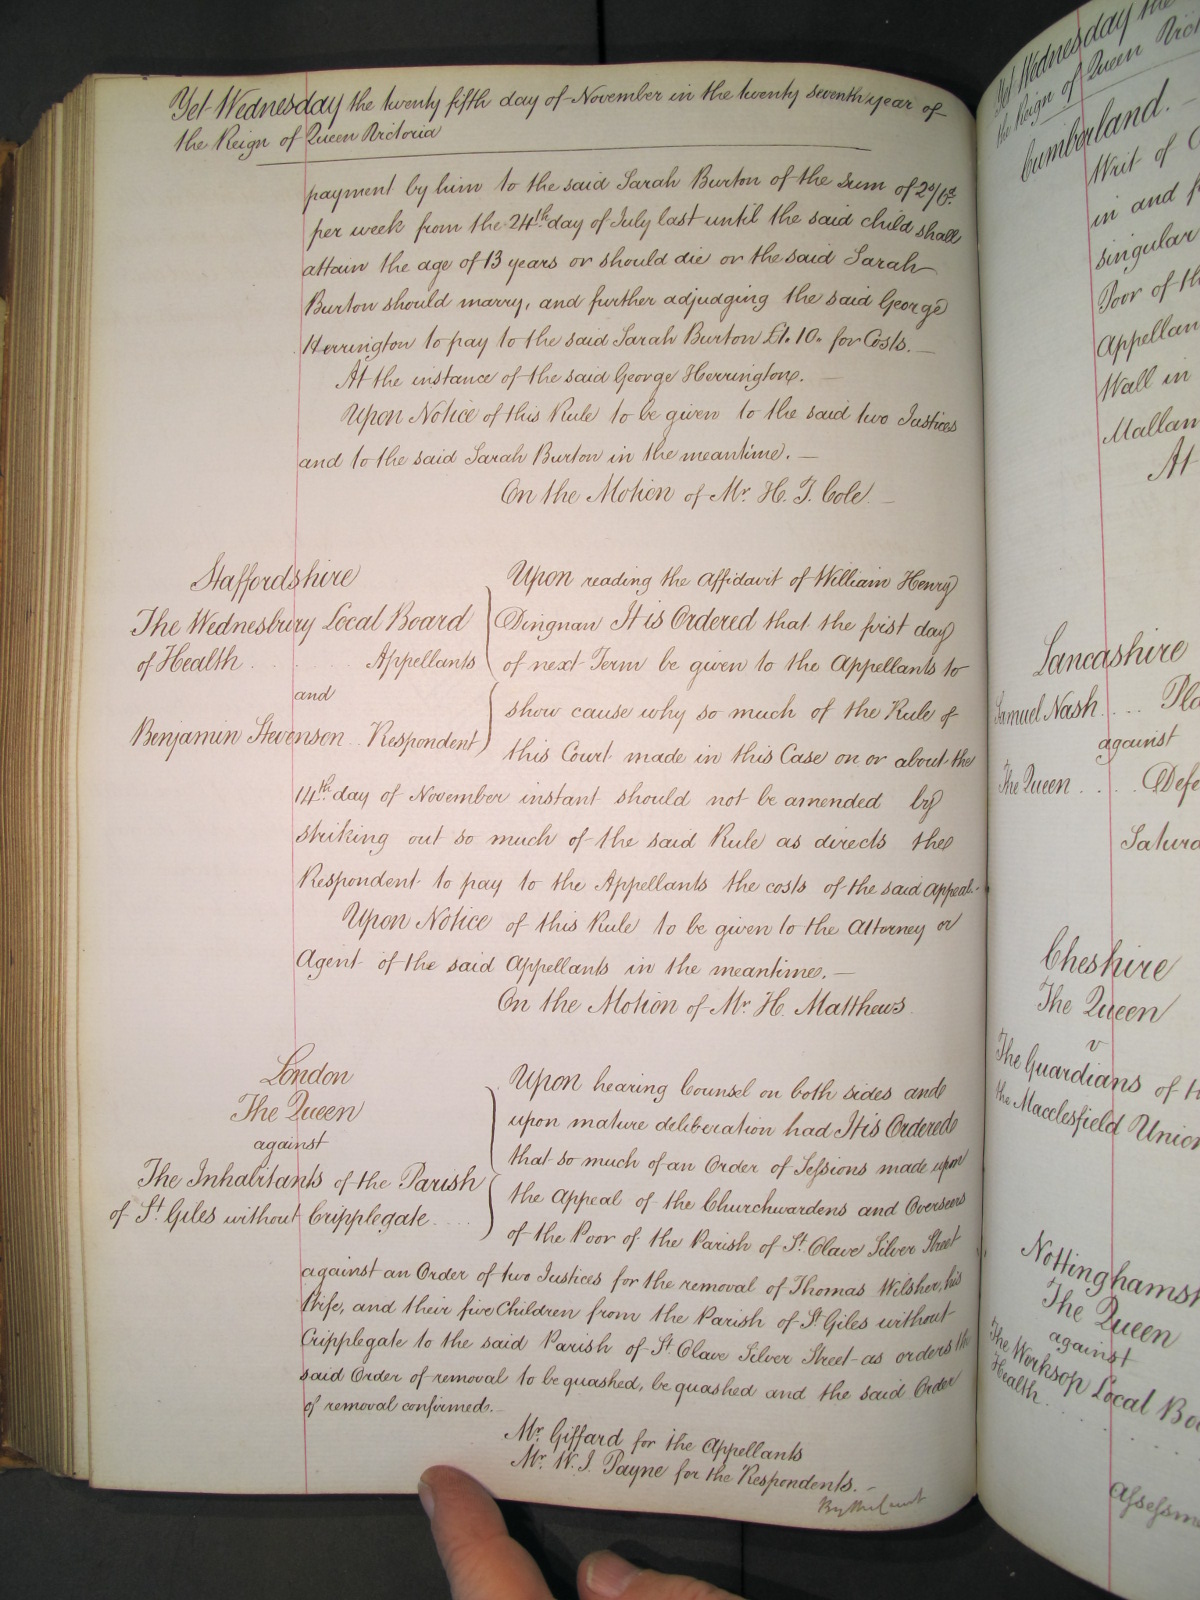 Yet Wednesday the twenty fifth day of November in the twenty seventh year of
the Reign of Queen Victoria
payment by him to the said Sarah Burton of the Sum of 2s/6d
per week from the 24th day of July last until the said child shall
attain the age of 13 years or should die or the said Sarah
Burton should marry, and further adjudging the said George
Herrington to pay to the said Sarah Burton £1. 10. for Costs.
At the instance of the said George Herrington.
Upon Notice of this Rule to be given to the said two Justices
and to the said Sarah Burton in the meantime.
On the Motion of Mr. H. T. Cole.
Staffordshire
The Wednesbury Local Board
of Health Appellants
and
Benjamin Stevenson Respondent
Upon reading the Affidavit of William Henry
Dingnan It is Ordered that the first day
of next Term be given to the Appellants to
show cause why so much of the Rule of
this Court made in this Case on or about the
14th day of November instant should not be amended by
striking out so much of the said Rule as directs the
Respondent to pay to the Appellants the costs of the said appeal.
Upon Notice of this Rule to be given to the Attorney or
Agent of the said Appellants in the meantime.
On the Motion of Mr. H. Matthews
London
The Queen
against
The Inhabitants of the Parish
of St. Giles without Cripplegate
Upon hearing Counsel on both sides and
upon mature deliberation had It is Ordered
that so much of an Order of Sessions made upon
the Appeal of the Churchwardens and Overseers
of the Poor of the Parish of St. Olave Silver Street
against an Order of two Justices for the removal of Thomas Wilsher, his
Wife, and their five Children from the Parish of St. Giles without
Cripplegate to the said Parish of St. Olave Silver Street as orders the
said Order of removal to be quashed, be quashed and the said Order
of removal confirmed.
Mr. Giffard for the Appellants
Mr. W. J. Payne for the Respondents.
By the Court
Yet Wednesday the
the Reign of Queen
Cumberland.
Writ of
in and
singular
Poor of th
Appellan
Wall in
Mallan
At
Lancashire
Samuel Nash
against
The Queen Defe
Saturd
Cheshire
The Queen
v
The Guardians of
the Macclesfield Union
Nottinghamsh
The Queen
against
The Worksop Local Bo
Health
Assessm